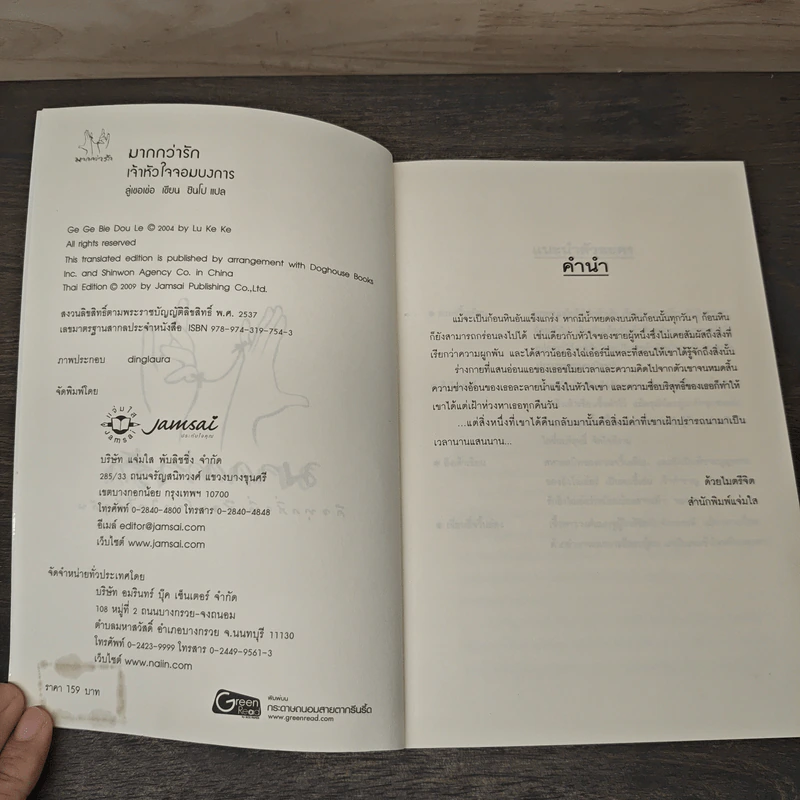 มากกว่ารัก
มากกว่ารัก
เจ้าหัวใจจอมบงการ
ลู่เขอเข่อ เขียน ซินโป แปล
Ge Ge Bie Dou Le © 2004 by Lu Ke Ke
All rights reserved
This translated edition is published by arrangement with Doghouse Books
Inc. and Shinwon Agency Co. in China
Thai Edition © 2009 by Jamsai Publishing Co.,Ltd.
สงวนลิขสิทธิ์ตามพระราชบัญญัติลิขสิทธิ์ พ.ศ. 2537
เลขมาตรฐานสากลประจำหนังสือ ISBN 978-974-319-754-3
ภาพประกอบ dinglaura
จัดพิมพ์โดย
แจ่มใส
Jamsai
Jamsai
บริษัท แจ่มใส พับลิชชิ่ง จำกัด
285/33 ถนนจรัญสนิทวงศ์ แขวงบางขุนศรี
เขตบางกอกน้อย กรุงเทพฯ 10700
โทรศัพท์ 0-2840-4800 โทรสาร 0-2840-4848
อีเมล์ editor@jamsai.com
เว็บไซต์ www.jamsai.com
จัดจำหน่ายทั่วประเทศโดย
บริษัท อมรินทร์ บุ๊ค เซ็นเตอร์ จำกัด
108 หมู่ที่ 2 ถนนบางกรวย-จงถนอม
ตำบลมหาสวัสดิ์ อำเภอบางกรวย จ.นนทบุรี 11130
โทรศัพท์ 0-2423-9999 โทรสาร 0-2449-9561-3
เว็บไซต์ www.naiin.com
ราคา 159 บาท
Green Read
พิมพ์บน
กระดาษถนอมสายตากรีนรี้ด
www.greenread.com
คำนำ
แม้จะเป็นก้อนหินอันแข็งแกร่ง หากมีน้ำหยดลงบนหินก้อนนั้นทุกวันๆ ก้อนหิน
ก็ยังสามารถกร่อนลงไปได้ เช่นเดียวกับหัวใจของชายผู้หนึ่งซึ่งไม่เคยสัมผัสถึงสิ่งที่
เรียกว่าความผูกพัน และได้สาวน้อยอิงไฉ่เอ๋อร์นี่แหละที่สอนให้เขาได้รู้จักถึงสิ่งนั้น
ร่างกายที่แสนอ่อนแอของเธอขโมยเวลาและความคิดไปจากตัวเขาจนหมดสิ้น
ความช่างอ้อนของเธอละลายน้ำแข็งในหัวใจเขา และความซื่อบริสุทธิ์ของเธอก็ทำให้
เขาได้แต่เฝ้าห่วงหาเธอทุกคืนวัน
...แต่สิ่งหนึ่งที่เขาได้คืนกลับมานั้นคือสิ่งมีค่าที่เขาเฝ้าปรารถนามาเป็น
เวลานานแสนนาน...
ด้วยไมตรีจิต
สำนักพิมพ์แจ่มใส